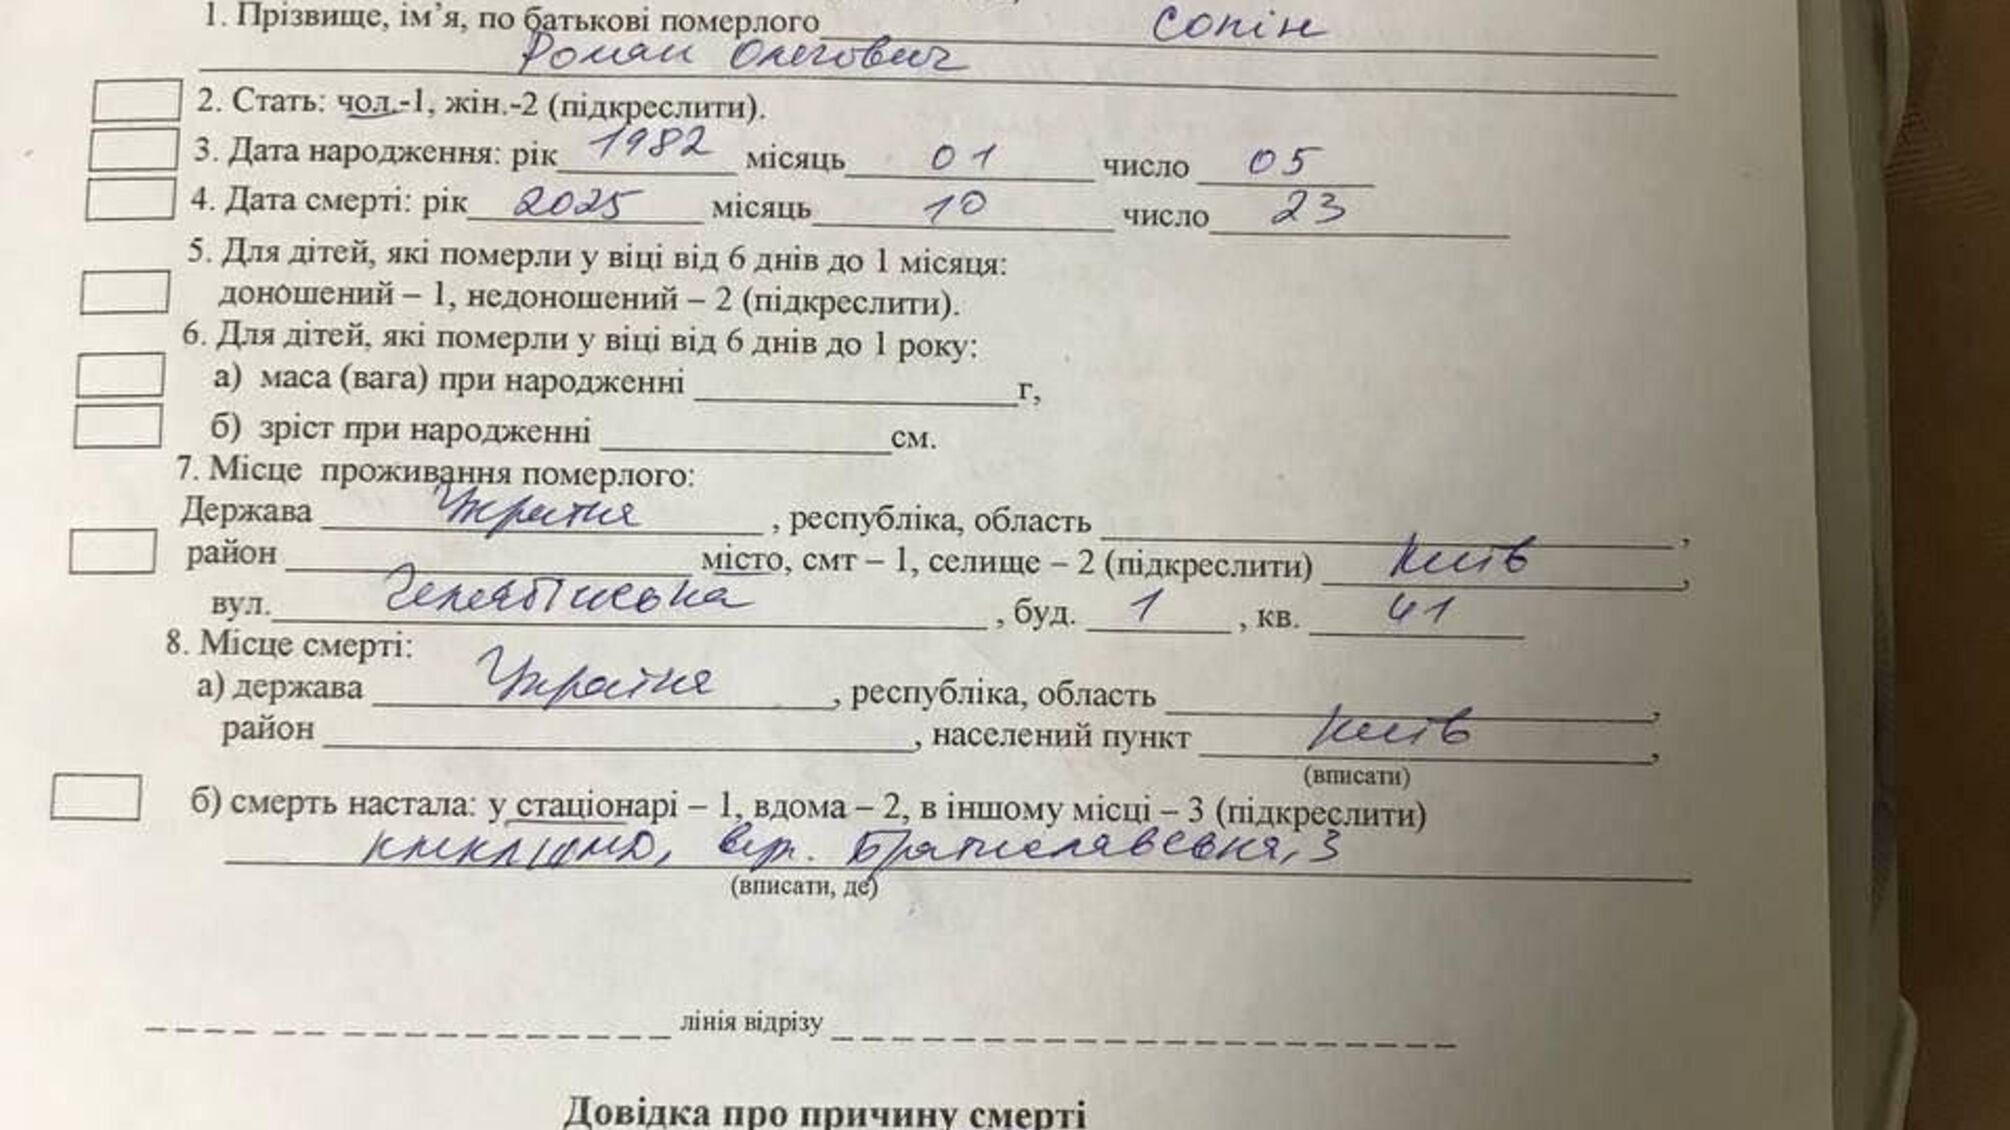 1. Прізвище, ім’я, по батькові померлого Сопін
Роман Олегович
2. Стать: чол.-1, жін.-2 (підкреслити).
3. Дата народження: рік 1982 місяць 01 число 05
4. Дата смерті: рік 2025 місяць 10 число 23
5. Для дітей, які померли у віці від 6 днів до 1 місяця:
доношений – 1, недоношений – 2 (підкреслити).
6. Для дітей, які померли у віці від 6 днів до 1 року:
а) маса (вага) при народженні г,
б) зріст при народженні см.
7. Місце проживання померлого:
Держава Україна, республіка, область ,
район місто, смт – 1, селище – 2 (підкреслити) Київ,
вул. Челябінська, буд. 1, кв. 41
8. Місце смерті:
а) держава Україна, республіка, область ,
район , населений пункт Київ,
(вписати)
б) смерть настала: у стаціонарі – 1, вдома – 2, в іншому місці – 3 (підкреслити)
вул. Братиславська, 3
(вписати, де)
лінія відрізу
Довідка про причину смерті